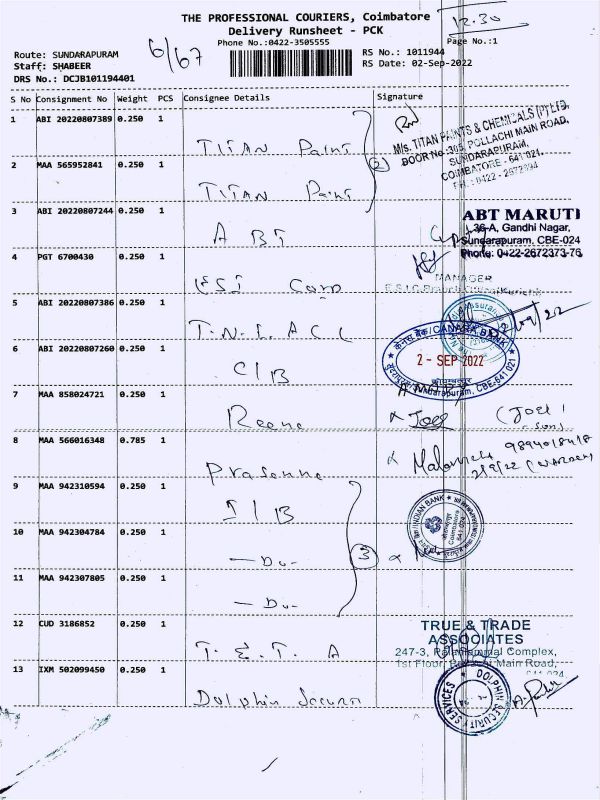 THE PROFESSIONAL COURIERS, Coimbatore
12.30
Delivery Runsheet - PCK
Phone No.:0422-3505555
Page No.:1
6/67
Route: SUNDARAPURAM
RS No.: 1011944
Staff: SHABEER
RS Date: 02-Sep-2022
DRS No.: DCJB101194401
S No Consignment No Weight PCS Consignee Details Signature
1 ABI 20220807389 0.250 1
TITAN Paint
M/s. TITAN PAINTS & CHEMICALS (P) LTD.
DOOR No.-305, POLLACHI MAIN ROAD,
SUNDARAPURAM,
COIMBATORE - 641 021.
2 MAA 565952841 0.250 1
TITAN Paint
2
3 ABI 20220807244 0.250 1
ABT
ABT MARUTI
36-A, Gandhi Nagar,
Sundarapuram, CBE-024
Phone: 0422-2672373-76
4 PGT 6700430 0.250 1
ESI Corp
MANAGER
5 ABI 20220807386 0.250 1
T.N.I.A.C.L
6 ABI 20220807260 0.250 1
CIB
केनरा बैंक/CANARA BANK
2 - SEP 2022
Sundarapuram, CBE-641 021
7 MAA 858024721 0.250 1
Reena
Joel
(Joel
Son)
8 MAA 566016348 0.785 1
Prasanna
2/9/22 (WARDEN)
9 MAA 942310594 0.250 1
IIB
INDIAN BANK
10 MAA 942304784 0.250 1
— Do -
3
11 MAA 942307805 0.250 1
— Do -
12 CUD 3186852 0.250 1
T. E. T. A
TRUE & TRADE
ASSOCIATES
247-3, Palaniammal Complex,
1st Floor, Main Road,
13 IXM 502099450 0.250 1
Dolphin Securi
DOLPHIN SECURITY SERVICES